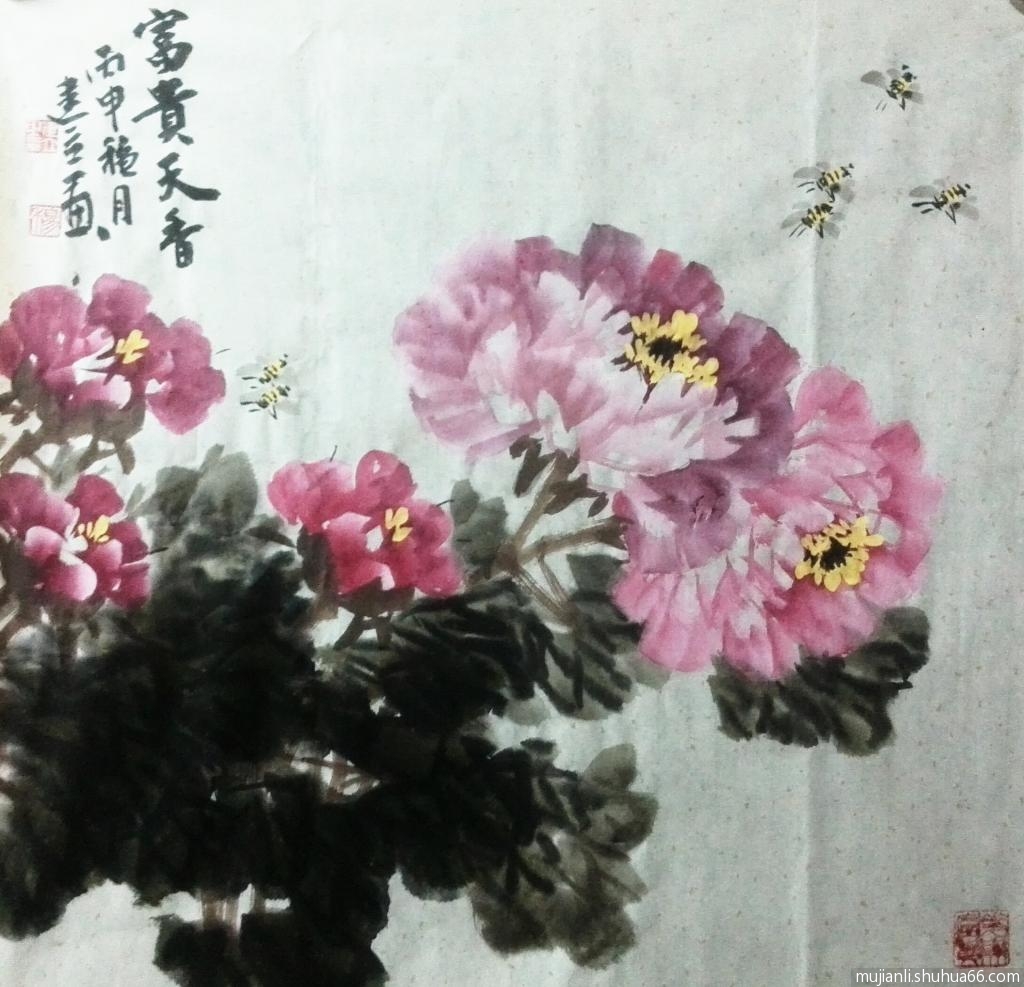 富貴天香
丙申穐月
建立画
mujianli.shuhua66.com